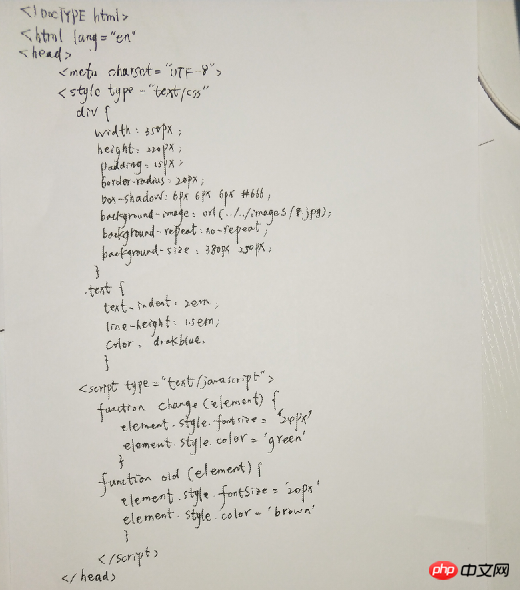 <!DOCTYPE html>
<html lang="en"
<head>
<meta charset="UTF-8">
<style type="text/css"
div {
width: 350px;
height: 220px;
padding: 15px;
border-radius: 20px;
box-shadow: 6px 6px 6px #666;
background-image: url(../../images/8.jpg);
background-repeat: no-repeat;
background-size: 380px 250px;
}
.text {
text-indent: 2em;
line-height: 1.5em;
color: darkblue.
}
<script type="text/javascript">
function change(element) {
element.style.fontsize = '20px'
element.style.color = 'green'
}
function old (element) {
element.style.fontSize = '20px'
element.style.color = 'brown'
}
</script>
</head>
php 中文网